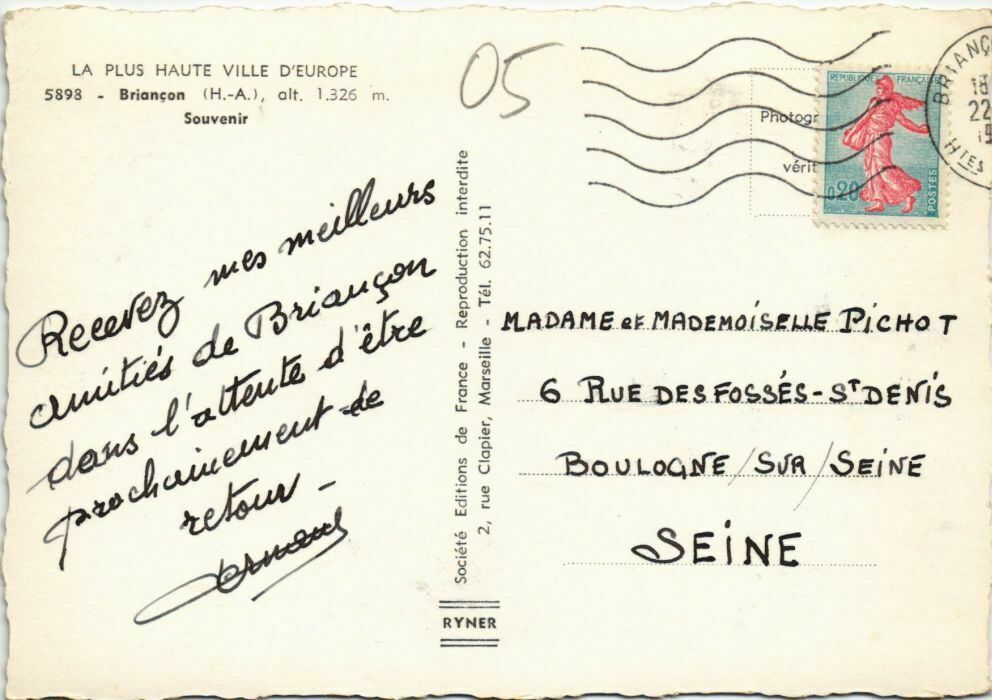 LA PLUS HAUTE VILLE D'EUROPE
5898 - Briançon (H.-A.), alt. 1.326 m.
Souvenir
05
Recevez mes meilleurs
amitiés de Briançon
dans l'attente d'être
prochainement de
retour -
Société Editions de France - Reproduction interdite
2, rue Clapier, Marseille - Tél. 62.75.11
RYNER
Photogr
vérit
REPUBLIQUE FRANÇAISE
0,20
POSTES
BRIANÇ
18
22
19
Htes
MADAME et MADEMOISELLE PICHOT
6 RUE DES FOSSÉS-ST DENIS
BOULOGNE/SUR/SEINE
SEINE